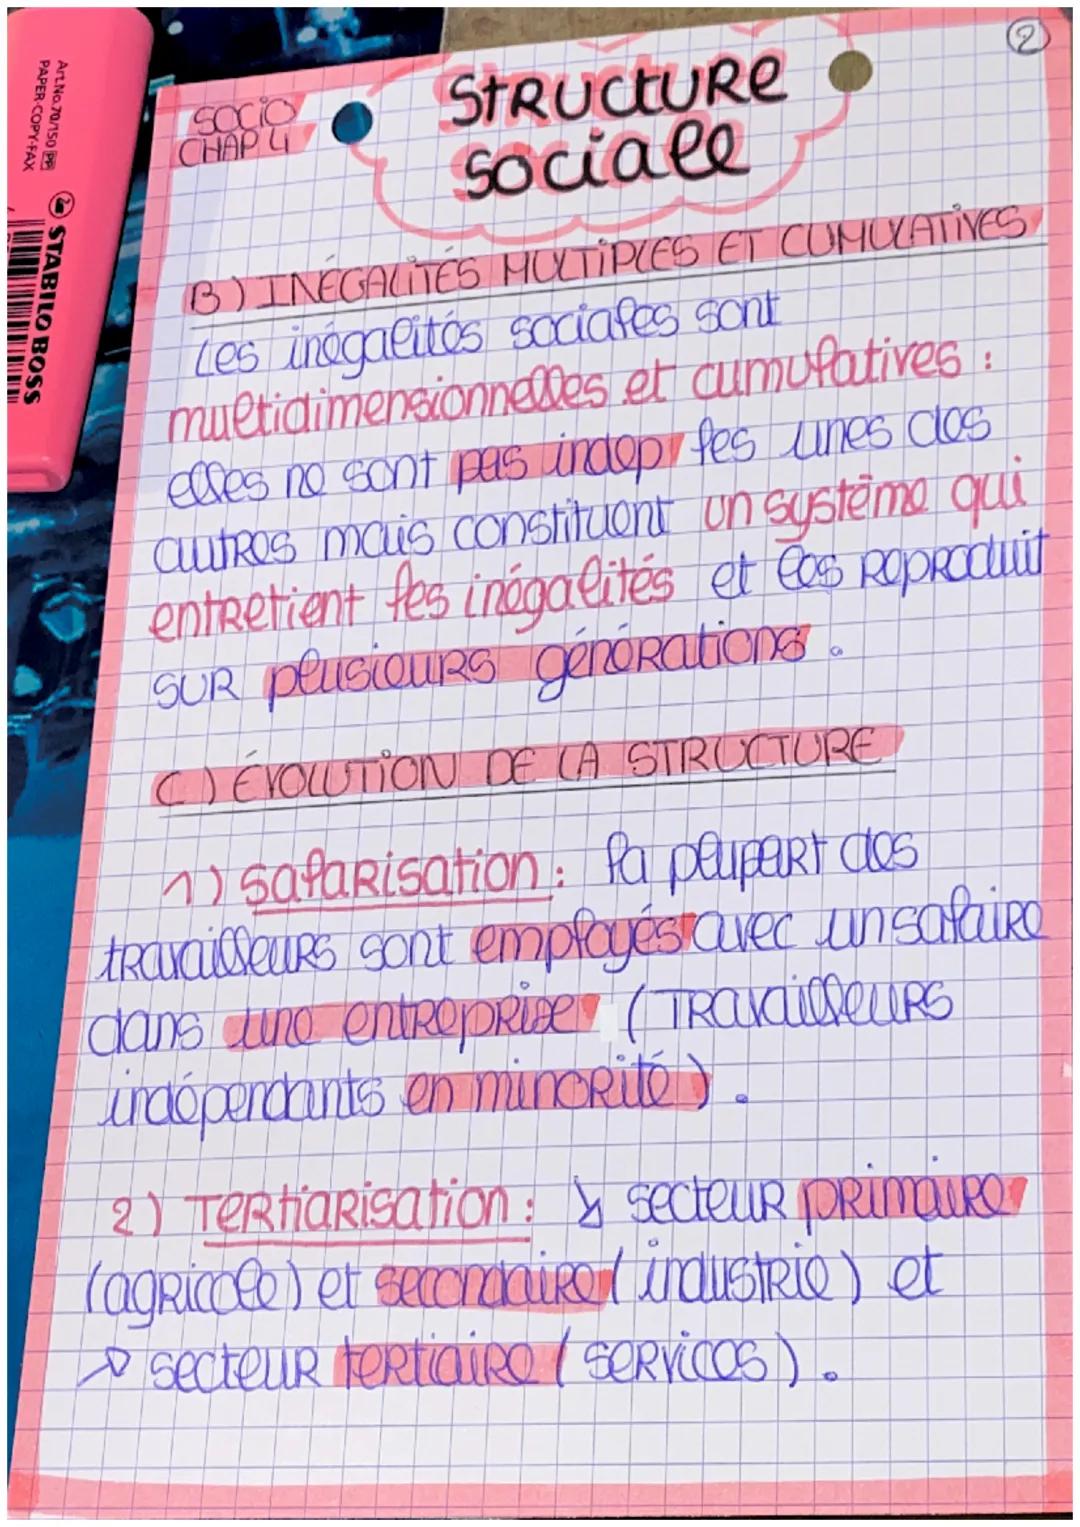 2
SOCIO
CHAP 4
STRUCTURE
sociale
B) INÉGALITÉS MULTIPLES ET CUMULATIVES
Les inégalités sociales sont
multidimensionnelles et cumulatives :
elles ne sont pas indep les unes des
autres mais constituent un système qui
entretient les inégalités et les reproduit
sur plusieurs générations.
C) ÉVOLUTION DE LA STRUCTURE
1) Salarisation : la plupart des
travailleurs sont employés avec un salaire
dans une entreprise (Travailleurs
indépendants en minorité).
2) Tertiarisation : ↘ secteur primaire
(agricole) et secondaire (industrie) et
↗ secteur tertiaire (services).
Art.No.70/150
PAPER·COPY·FAX
STABILO BOSS